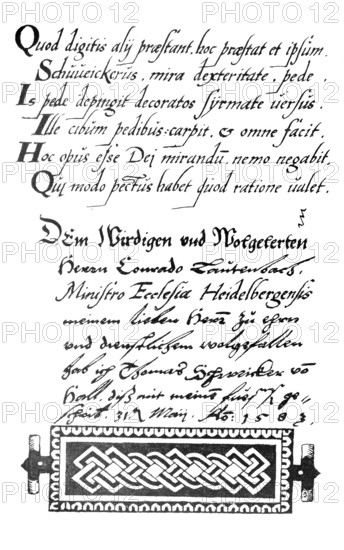 Quod digitis alij præstant, hoc præstat et ipsum.
Schuueickerus, mira dexteritate, pede.
Is pede depingit decoratos syrmate uersus.
Ille cibum pedibus carpit, & omne facit.
Hoc opus esse Dei mirandū, nemo negabit,
Qui modo pectus habet quod ratione ualet.
DEm Würdigen vnd Wolgelerten
Herrn Conrado Lautenbach,
Ministro Ecclesiæ Heidelbergensis
meinem lieben Herrn zu ehrn
vnd dienstlichem wolgefallen
hab ich Thomas Schweicker vō
Hall, diß mit meinē füessē ge-
schribē. 31. Maij. Aō: 1583.
PHOTO 12